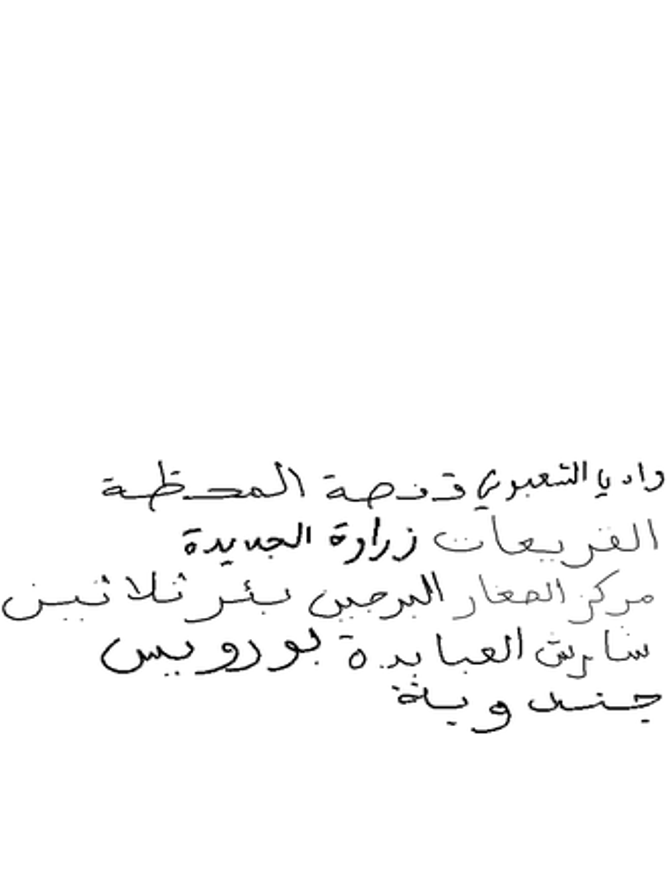 واديا الشعبوني قفصة المحطة
القريعات زراوة الجديدة
مركز الصغار البرجين بئر ثلاثين
شارش العبابدة بورويس
جندوبة